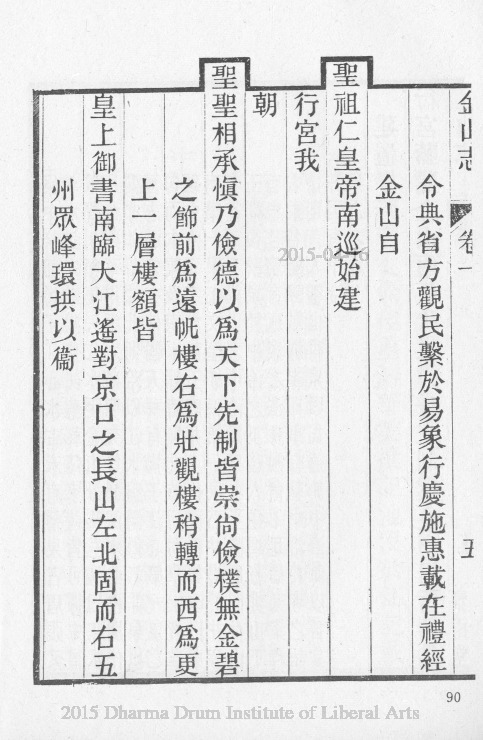 金山志 卷一 五
令典省方觀民繫於易象行慶施惠載在禮經
金山自
聖祖仁皇帝南巡始建
行宮我
朝
聖聖相承愼乃儉德以爲天下先制皆崇尙儉樸無金碧
之飾前爲遠帆樓右爲壯觀樓稍轉而西爲更
上一層樓額皆
皇上御書南臨大江遙對京口之長山左北固而右五
州眾峰環拱以衞
90
2015-04-16
2015 Dharma Drum Institute of Liberal Arts